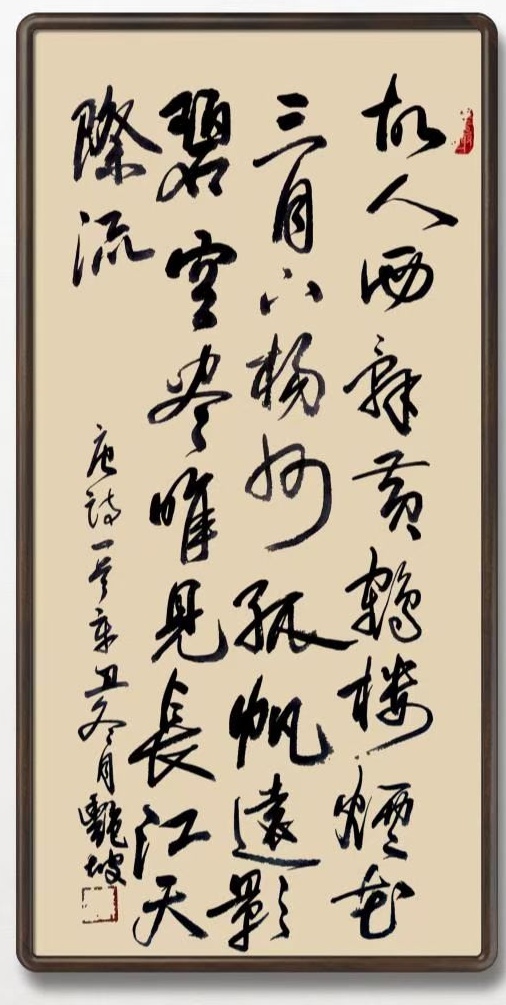 故人西辞黄鹤楼烟花
三月下扬州孤帆远影
碧空尽唯见长江天
际流
唐诗一首辛丑冬月艳坡